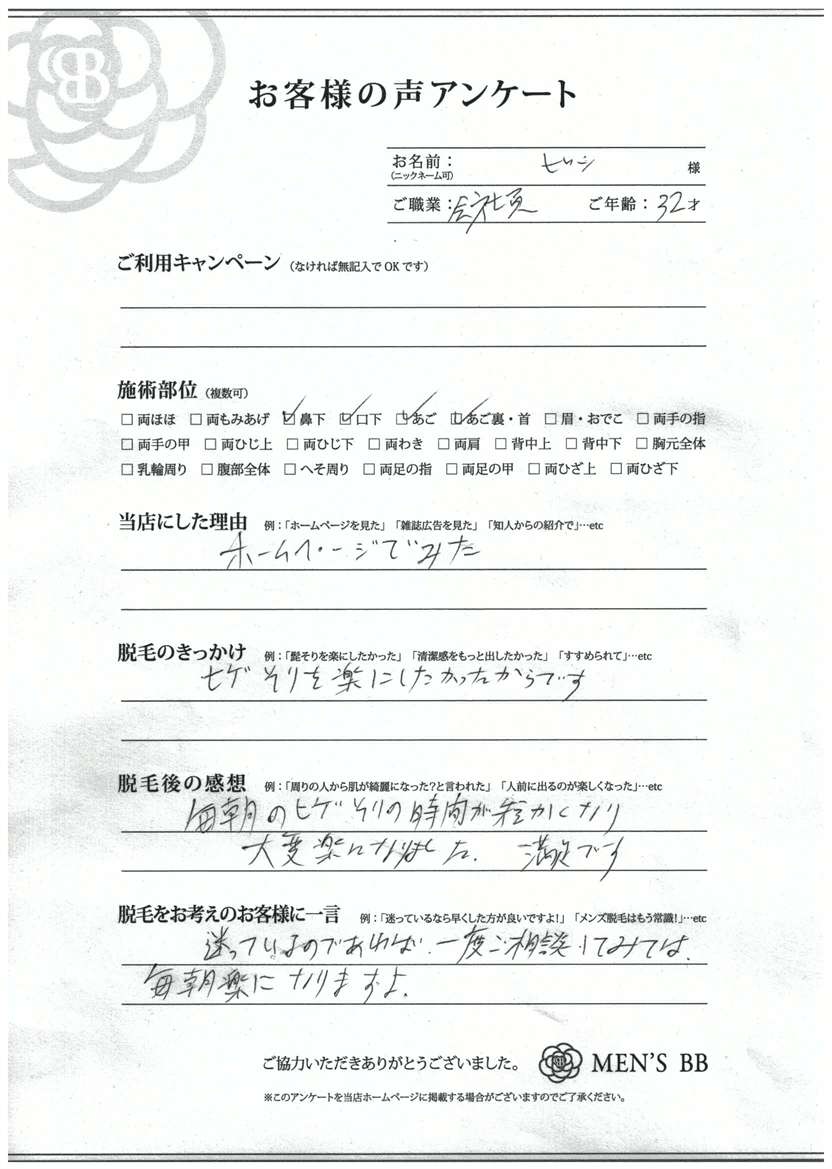 BB
お客様の声アンケート
お名前: 様
(ニックネーム可)
ご職業:会社員 ご年齢:32才
ご利用キャンペーン (なければ無記入でOKです)
施術部位 (複数可)
□両ほほ □両もみあげ ☑鼻下 ☑口下 ☑あご ☑あご裏・首 □眉・おでこ □両手の指
□両手の甲 □両ひじ上 □両ひじ下 □両わき □両肩 □背中上 □背中下 □胸元全体
□乳輪周り □腹部全体 □へそ周り □両足の指 □両足の甲 □両ひざ上 □両ひざ下
当店にした理由 例:「ホームページを見た」「雑誌広告を見た」「知人からの紹介で」…etc
ホームページでみた
脱毛のきっかけ 例:「髭そりを楽にしたかった」「清潔感をもっと出したかった」「すすめられて」…etc
ヒゲそりを楽にしたかったからです
脱毛後の感想 例:「周りの人から肌が綺麗になった?と言われた」「人前に出るのが楽しくなった」…etc
毎朝のヒゲそりの時間が短かくなり
大変楽になりました. 満足です
脱毛をお考えのお客様に一言 例:「迷っているなら早くした方が良いですよ!」「メンズ脱毛はもう常識!」…etc
迷っているのであれば.一度ご相談してみては.
毎朝楽になりますよ.
ご協力いただきありがとうございました。 MEN'S BB
※このアンケートを当店ホームページに掲載する場合がございますのでご了承ください。